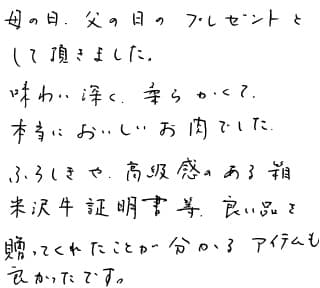 母の日、父の日の プレゼントと
して頂きました。
味わい深く、柔らかくて、
本当に おいしい お肉でした。
ふろしきや、高級感のある箱
米沢牛証明書等、良い品を
贈ってくれたことが分かる アイテムも
良かったです。